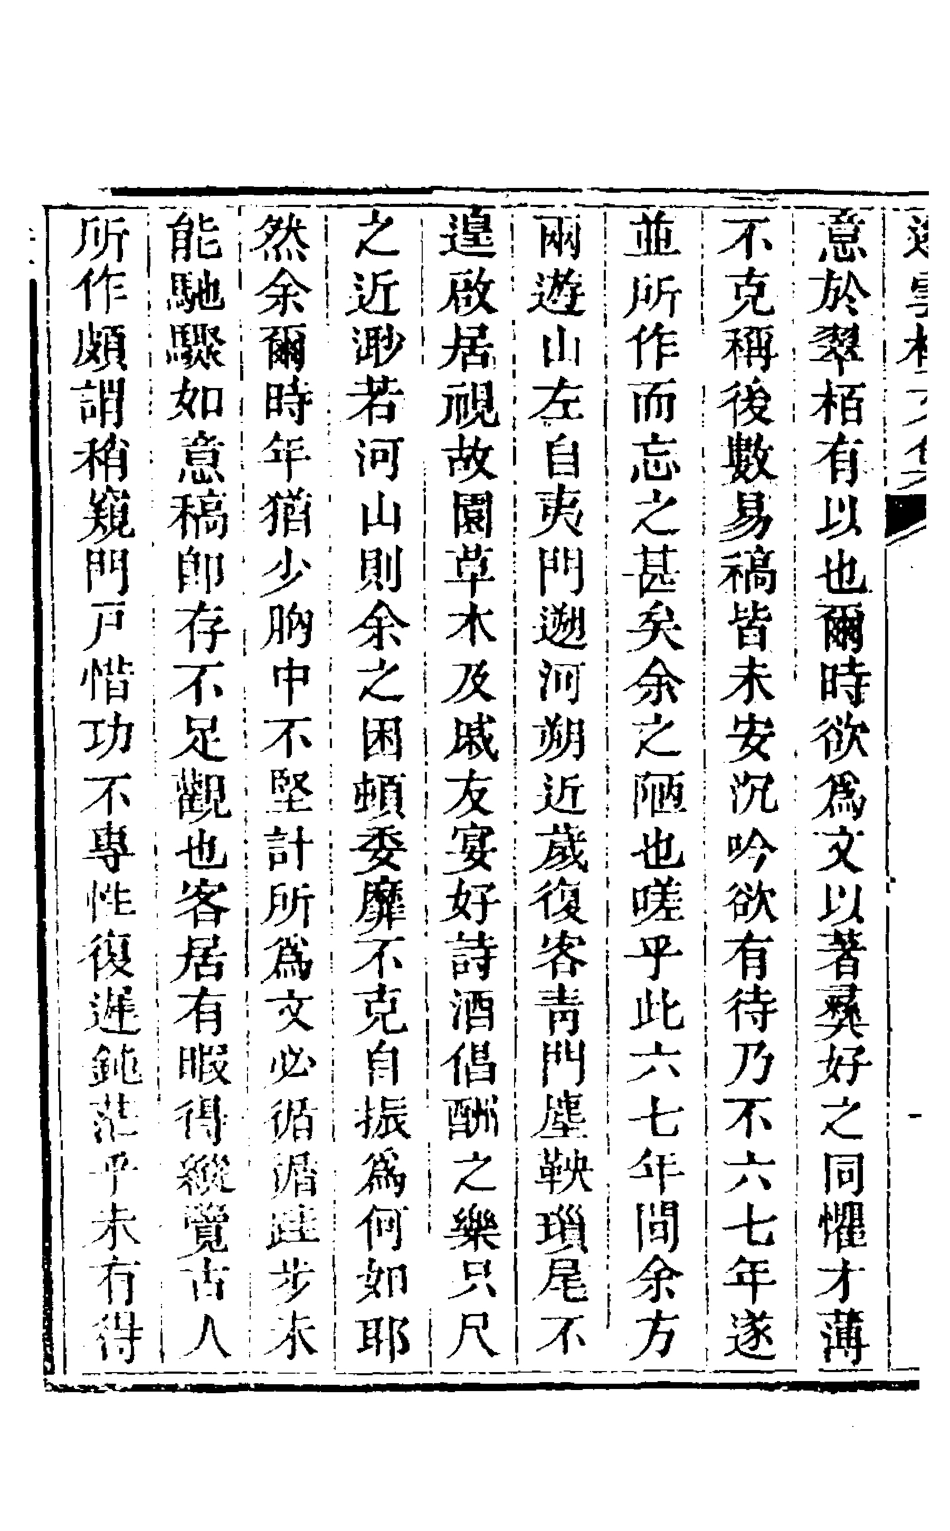 意於翠栢有以也爾時欲爲文以著彛好之同懼才薄
不克稱後數易稿皆未安沉吟欲有待乃不六七年遂
並所作而忘之甚矣余之陋也嗟乎此六七年間余方
兩遊山左自夷門遡河朔近歲復客靑門塵鞅瑣尾不
遑啟居視故園草木及戚友宴好詩酒倡酬之樂只尺
之近渺若河山則余之困頓委靡不克自振爲何如耶
然余爾時年猶少胸中不堅計所爲文必循循跬步未
能馳驟如意稿卽存不足觀也客居有暇得縱覽古人
所作頗謂稍窺門戸惜功不專性復遲鈍茫乎未有得